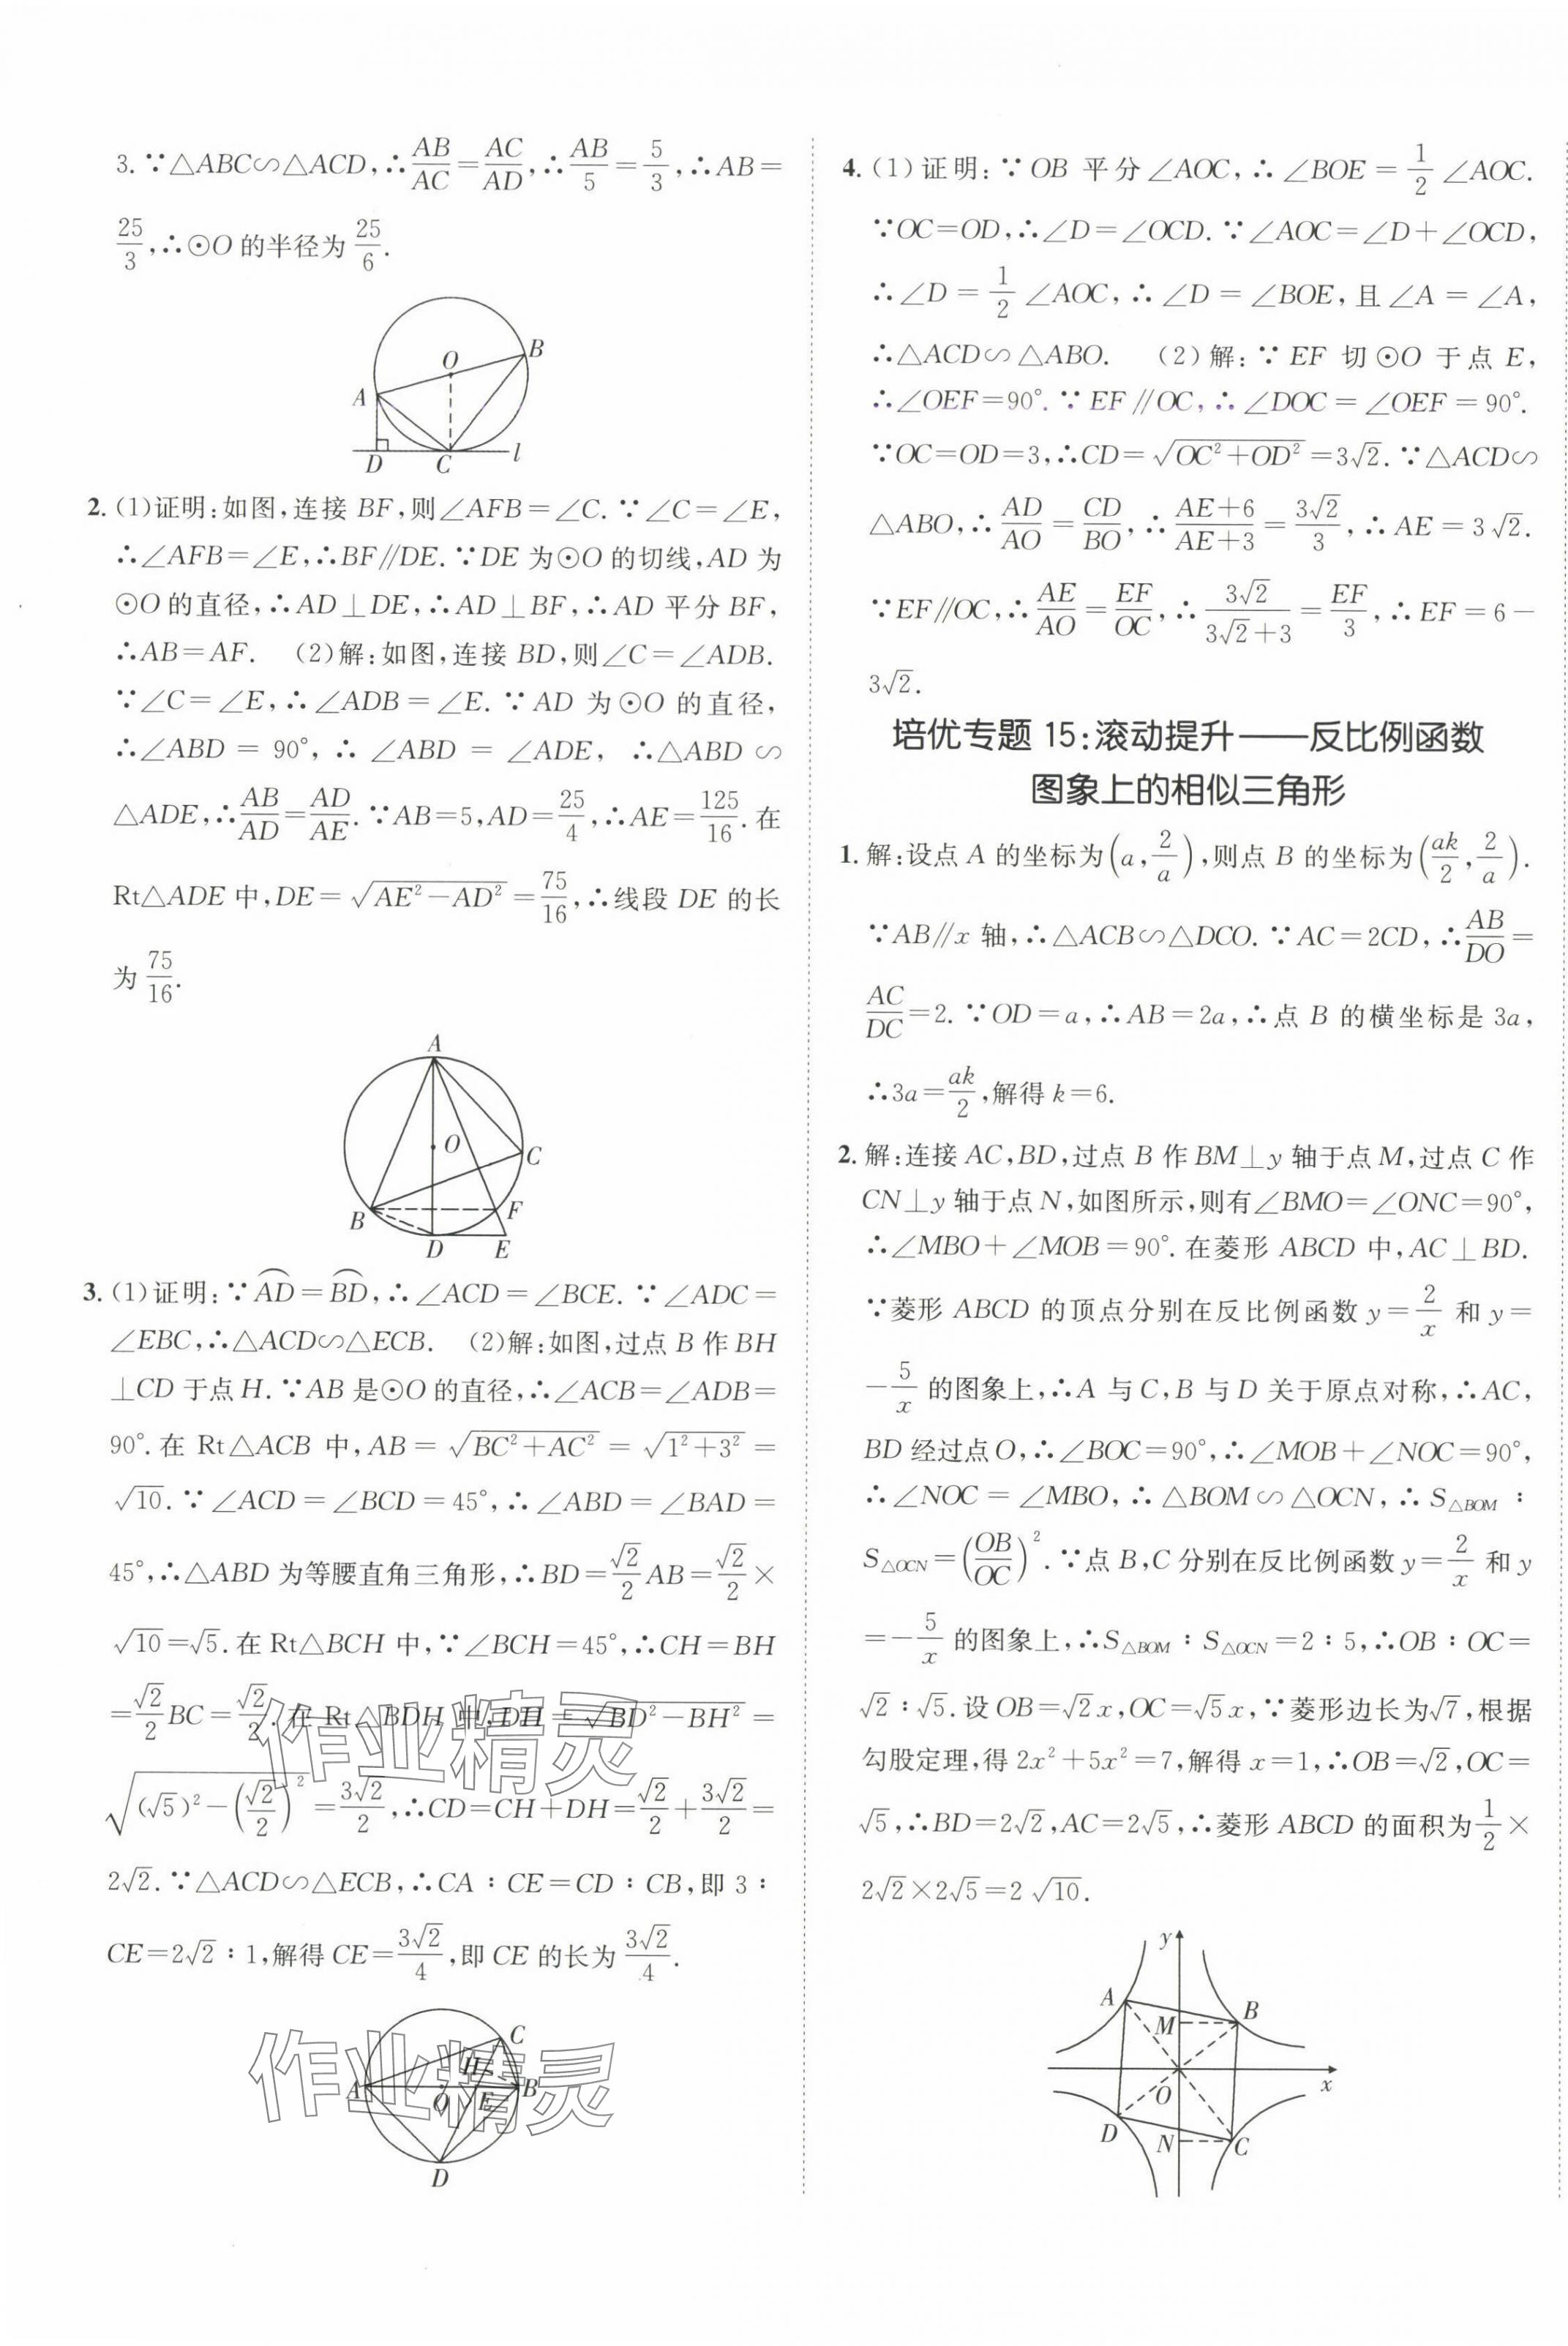 3. ∵△ABC∽△ACD,∴AB/AC=AC/AD,∴AB/5=5/3,∴AB=
25/3,∴⊙O的半径为25/6.
O
B
A
D
C
l
2. (1)证明:如图,连接BF,则∠AFB=∠C. ∵∠C=∠E,
∴∠AFB=∠E,∴BF∥DE. ∵DE为⊙O的切线,AD为
⊙O的直径,∴AD⊥DE,∴AD⊥BF,∴AD平分BF,
∴AB=AF. (2)解:如图,连接BD,则∠C=∠ADB.
∵∠C=∠E,∴∠ADB=∠E. ∵AD为⊙O的直径,
∴∠ABD=90°,∴∠ABD=∠ADE, ∴△ABD∽
△ADE,∴AB/AD=AD/AE. ∵AB=5,AD=25/4,∴AE=125/16. 在
Rt△ADE中,DE=√(AE²-AD²)=75/16,∴线段DE的长
为75/16.
A
O
C
B
F
D
E
3. (1)证明:∵⌒AD=⌒BD,∴∠ACD=∠BCE. ∵∠ADC=
∠EBC,∴△ACD∽△ECB. (2)解:如图,过点B作BH
⊥CD于点H. ∵AB是⊙O的直径,∴∠ACB=∠ADB=
90°. 在Rt△ACB中,AB=√(BC²+AC²)=√(1²+3²)=
√10. ∵∠ACD=∠BCD=45°,∴∠ABD=∠BAD=
45°,∴△ABD为等腰直角三角形,∴BD=√2/2AB=√2/2×
√10=√5. 在Rt△BCH中,∵∠BCH=45°,∴CH=BH
=√2/2BC=√2/2. 在Rt△BDH中,DH=√(BD²-BH²)=
√((√5)²-(√2/2)²)=3√2/2,∴CD=CH+DH=√2/2+3√2/2=
2√2. ∵△ACD∽△ECB,∴CA∶CE=CD∶CB,即3∶
CE=2√2∶1,解得CE=3√2/4,即CE的长为3√2/4.
作业精灵
C
H
A
O
E
B
D
作业精灵
4. (1)证明:∵OB平分∠AOC,∴∠BOE=1/2∠AOC.
∵OC=OD,∴∠D=∠OCD. ∵∠AOC=∠D+∠OCD,
∴∠D=1/2∠AOC,∴∠D=∠BOE,且∠A=∠A,
∴△ACD∽△ABO. (2)解:∵EF切⊙O于点E,
∴∠OEF=90°. ∵EF∥OC,∴∠DOC=∠OEF=90°.
∵OC=OD=3,∴CD=√(OC²+OD²)=3√2. ∵△ACD∽
△ABO,∴AD/AO=CD/BO,∴(AE+6)/(AE+3)=3√2/3,∴AE=3√2.
∵EF∥OC,∴AE/AO=EF/OC,∴3√2/(3√2+3)=EF/3,∴EF=6-
3√2.
培优专题15:滚动提升——反比例函数
图象上的相似三角形
1. 解:设点A的坐标为(a,2/a),则点B的坐标为(ak/2,2/a).
∵AB∥x轴,∴△ACB∽△DCO. ∵AC=2CD,∴AB/DO=
AC/DC=2. ∵OD=a,∴AB=2a,∴点B的横坐标是3a,
∴3a=ak/2,解得k=6.
2. 解:连接AC,BD,过点B作BM⊥y轴于点M,过点C作
CN⊥y轴于点N,如图所示,则有∠BMO=∠ONC=90°,
∴∠MBO+∠MOB=90°. 在菱形ABCD中,AC⊥BD.
∵菱形ABCD的顶点分别在反比例函数y=2/x和y=
-5/x的图象上,∴A与C,B与D关于原点对称,∴AC,
BD经过点O,∴∠BOC=90°,∴∠MOB+∠NOC=90°,
∴∠NOC=∠MBO,∴△BOM∽△OCN,∴S△BOM∶
S△OCN=(OB/OC)². ∵点B,C分别在反比例函数y=2/x和y
=-5/x的图象上,∴S△BOM∶S△OCN=2∶5,∴OB∶OC=
√2∶√5. 设OB=√2x,OC=√5x,∵菱形边长为√7,根据
勾股定理,得2x²+5x²=7,解得x=1,∴OB=√2,OC=
√5,∴BD=2√2,AC=2√5,∴菱形ABCD的面积为1/2×
2√2×2√5=2√10.
y
A
B
M
O
x
D
N
C